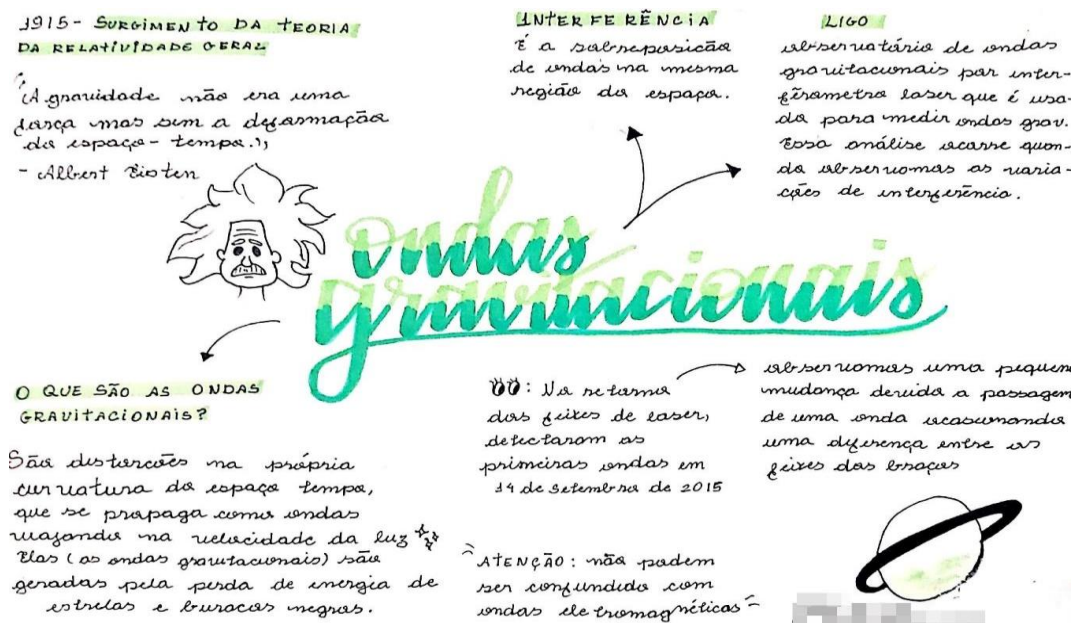 1915- SURGIMENTO DA TEORIA
DA RELATIVIDADE GERAL
"A gravidade não era uma
força mas sim a deformação
do espaço-tempo.",
- Albert Eisten
INTERFERÊNCIA
É a sobreposição
de ondas na mesma
região do espaço.
LIGO
observatório de ondas
gravitacionais por inter-
ferômetro laser que é usa-
do para medir ondas grav.
Essa análise ocorre quan-
do observamos as varia-
ções de interferência.
ondas
gravitacionais
O QUE SÃO AS ONDAS
GRAVITACIONAIS?
São distorções na própria
curvatura do espaço tempo,
que se propaga como ondas
viajando na velocidade da luz
Elas (as ondas gravitacionais) são
geradas pela perda de energia de
estrelas e buracos negros.
: No retorno
dos feixes de laser,
detectaram as
primeiras ondas em
14 de setembro de 2015
observamos uma pequena
mudança devido a passagem
de uma onda ocasionando
uma diferença entre os
feixes dos braços
ATENÇÃO: não podem
ser confundido com
ondas eletromagnéticas